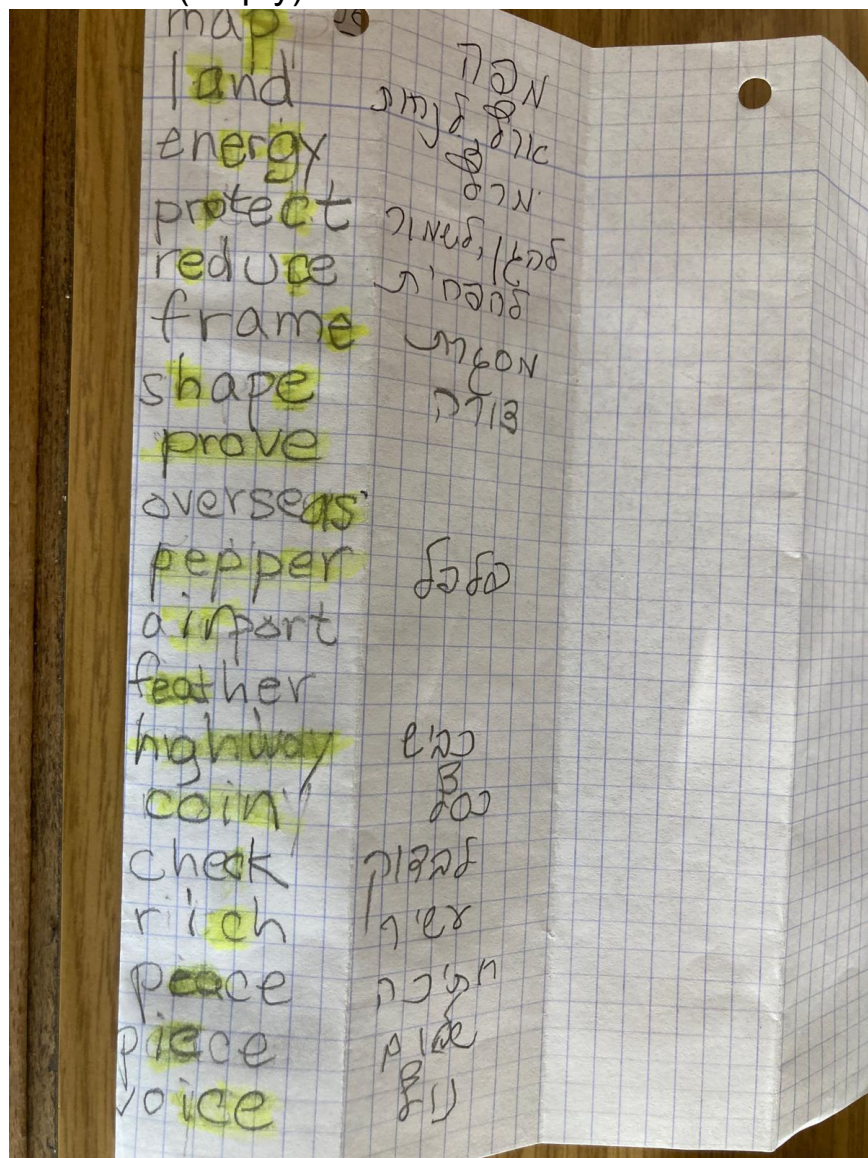 map מפה
land ארץ, לנחות
energy מרץ
protect להגן, לשמור
reduce להפחית
frame מסגרת
shape צורה
prove
overseas
pepper פלפל
airport
feather
highway כביש
coin כסף
check לבדוק
rich עשיר
peace חתיכה
piece שלום
voice